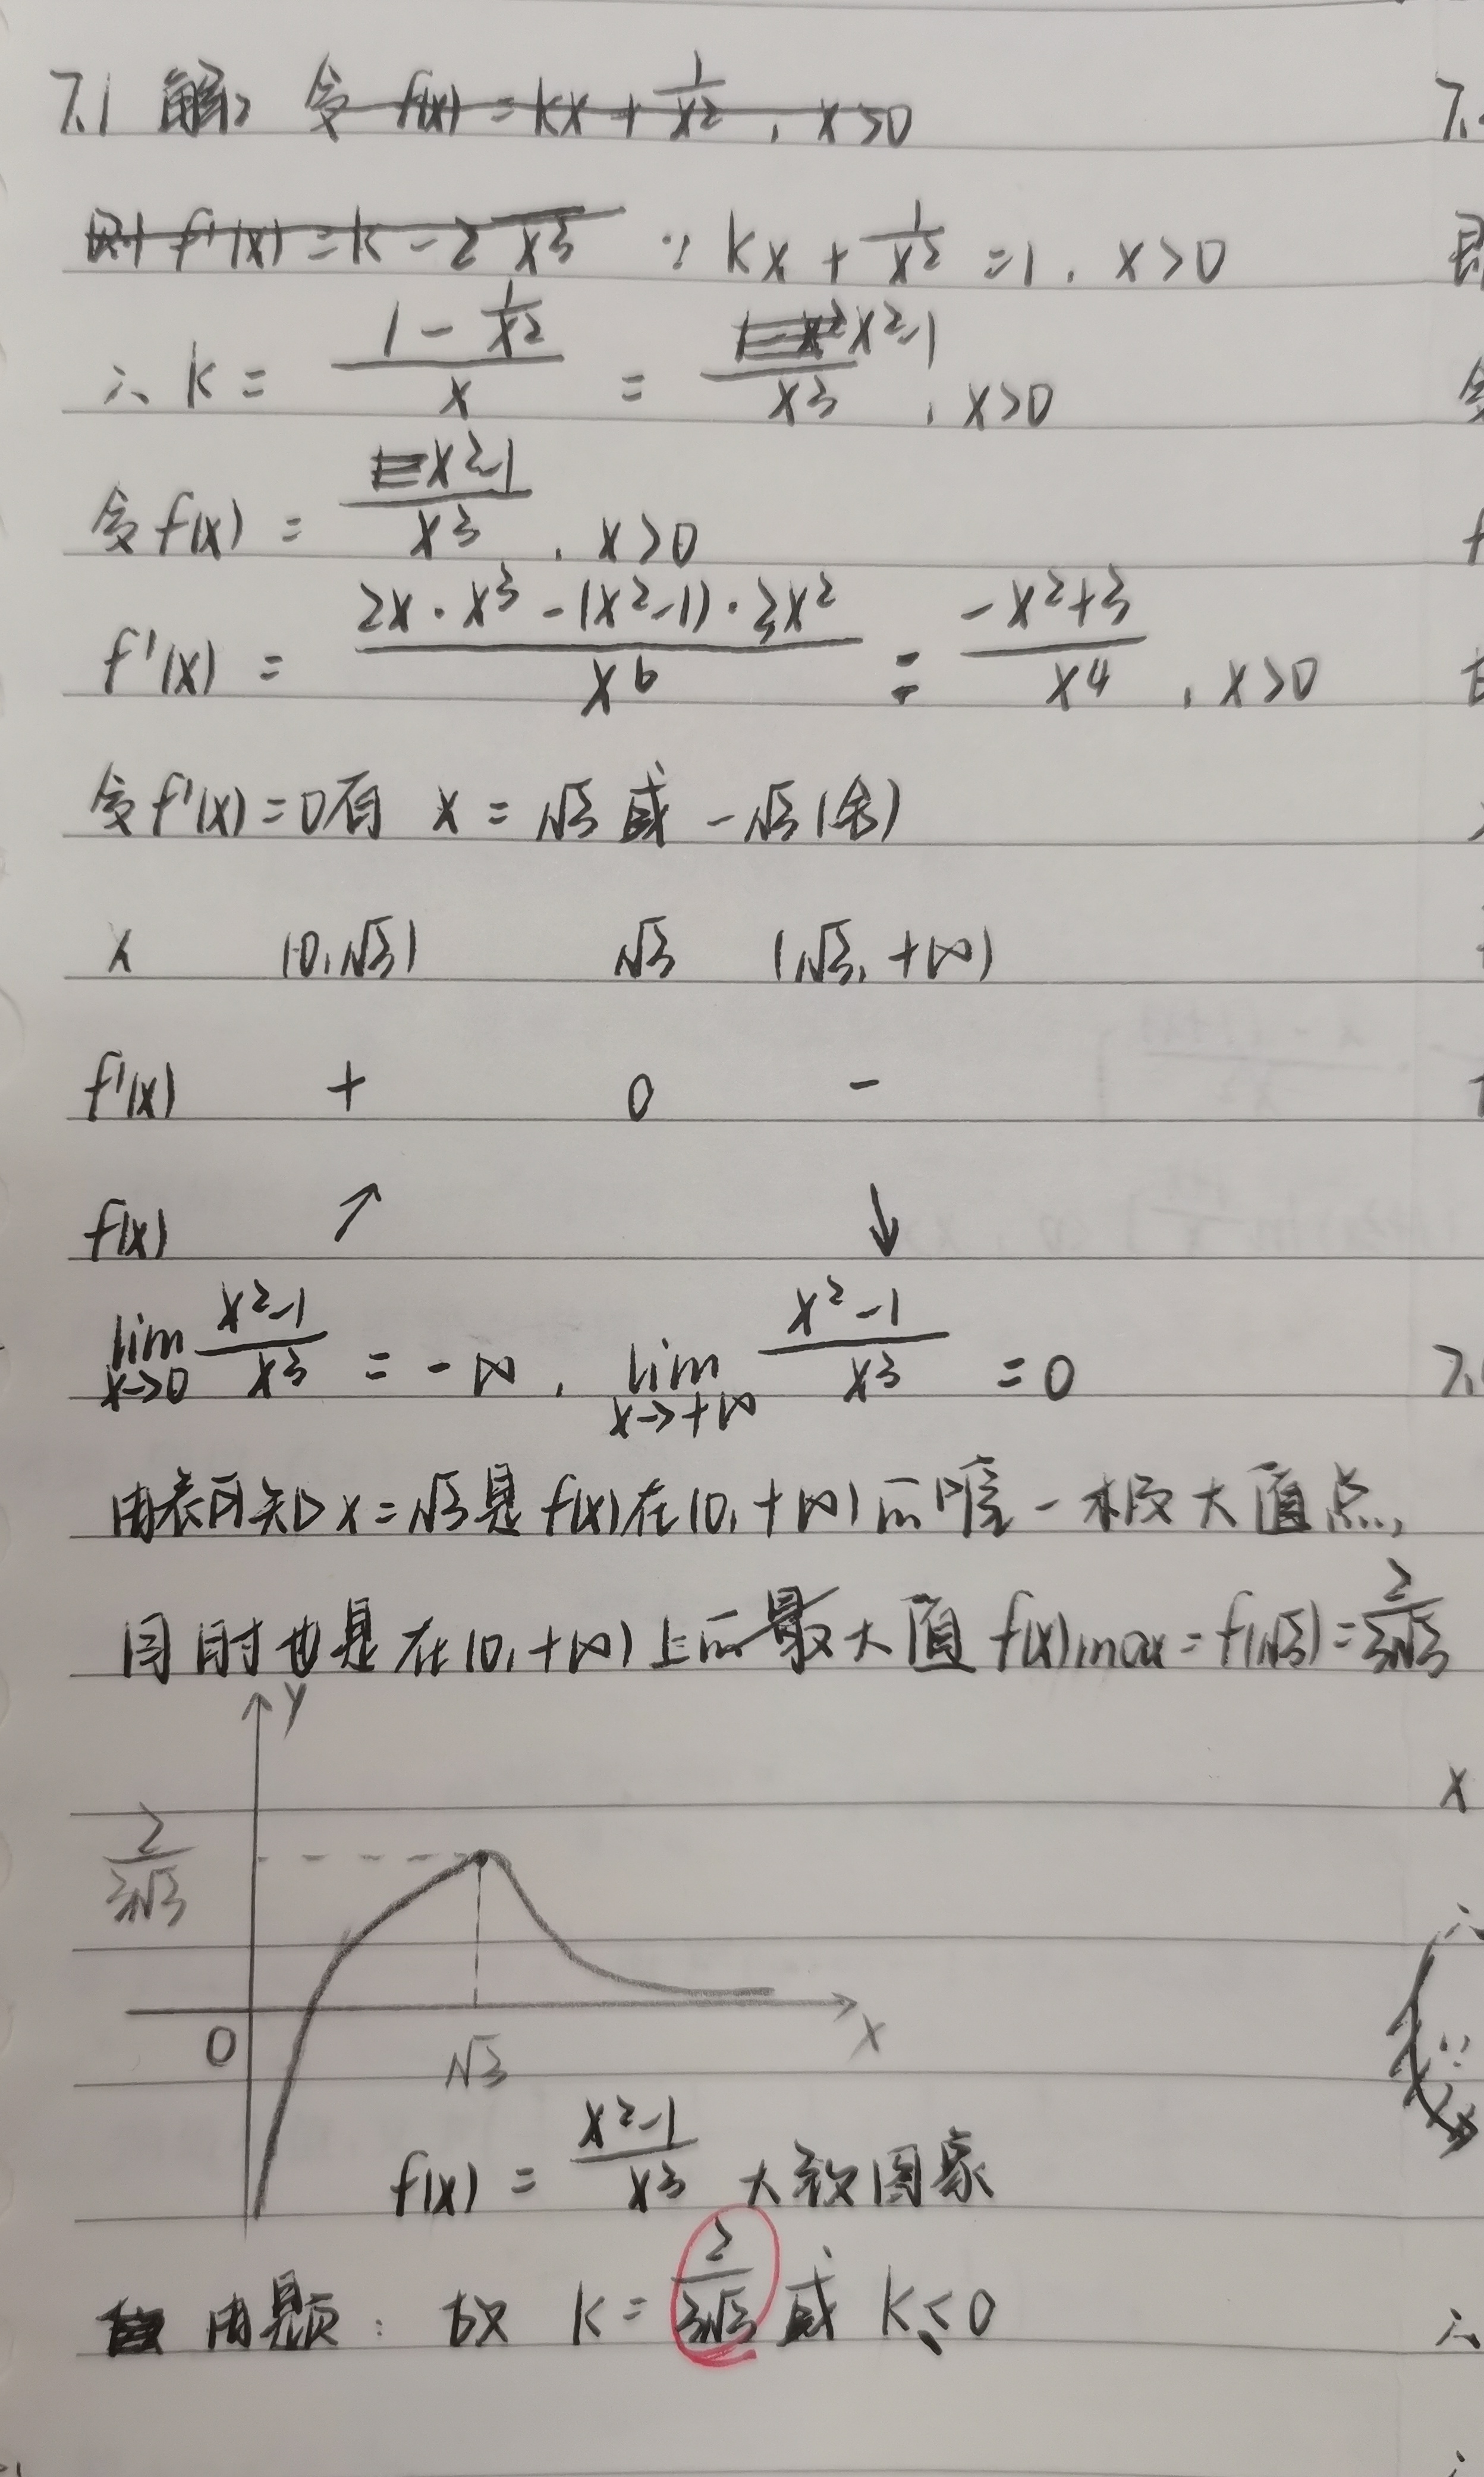 7.1 解: 令 f(x) = kx + 1/x², x>0
则 f'(x) = k - 2 1/x³ ∵ kx + 1/x² = 1, x>0
∴ k = (1 - 1/x²)/x = (x²-1)/x³, x>0
令 f(x) = (x²-1)/x³, x>0
f'(x) = (2x·x³ - (x²-1)·3x²)/x⁶ = (-x²+3)/x⁴, x>0
令 f'(x) = 0 有 x = √3 或 -√3 (舍)
x (0,√3) √3 (√3, +∞)
f'(x) + 0 -
f(x) ↗ ↓
lim x→0 (x²-1)/x³ = -∞, lim x→+∞ (x²-1)/x³ = 0
由表可知 x=√3 是 f(x) 在 (0, +∞) 的唯一极大值点,
同时也是在 (0, +∞) 上的最大值 f(x)max = f(√3) = 2/(3√3)
y
2/(3√3)
0 √3 x
f(x) = (x²-1)/x³ 大致图象
由题: 故 k = 2/(3√3) 或 k ≤ 0